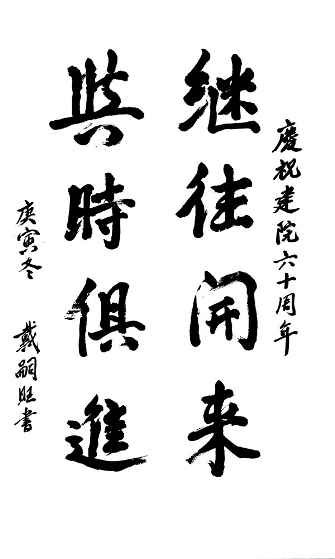 慶祝建院六十周年
继往开来
與時俱進
庚寅冬 戴嗣旺書